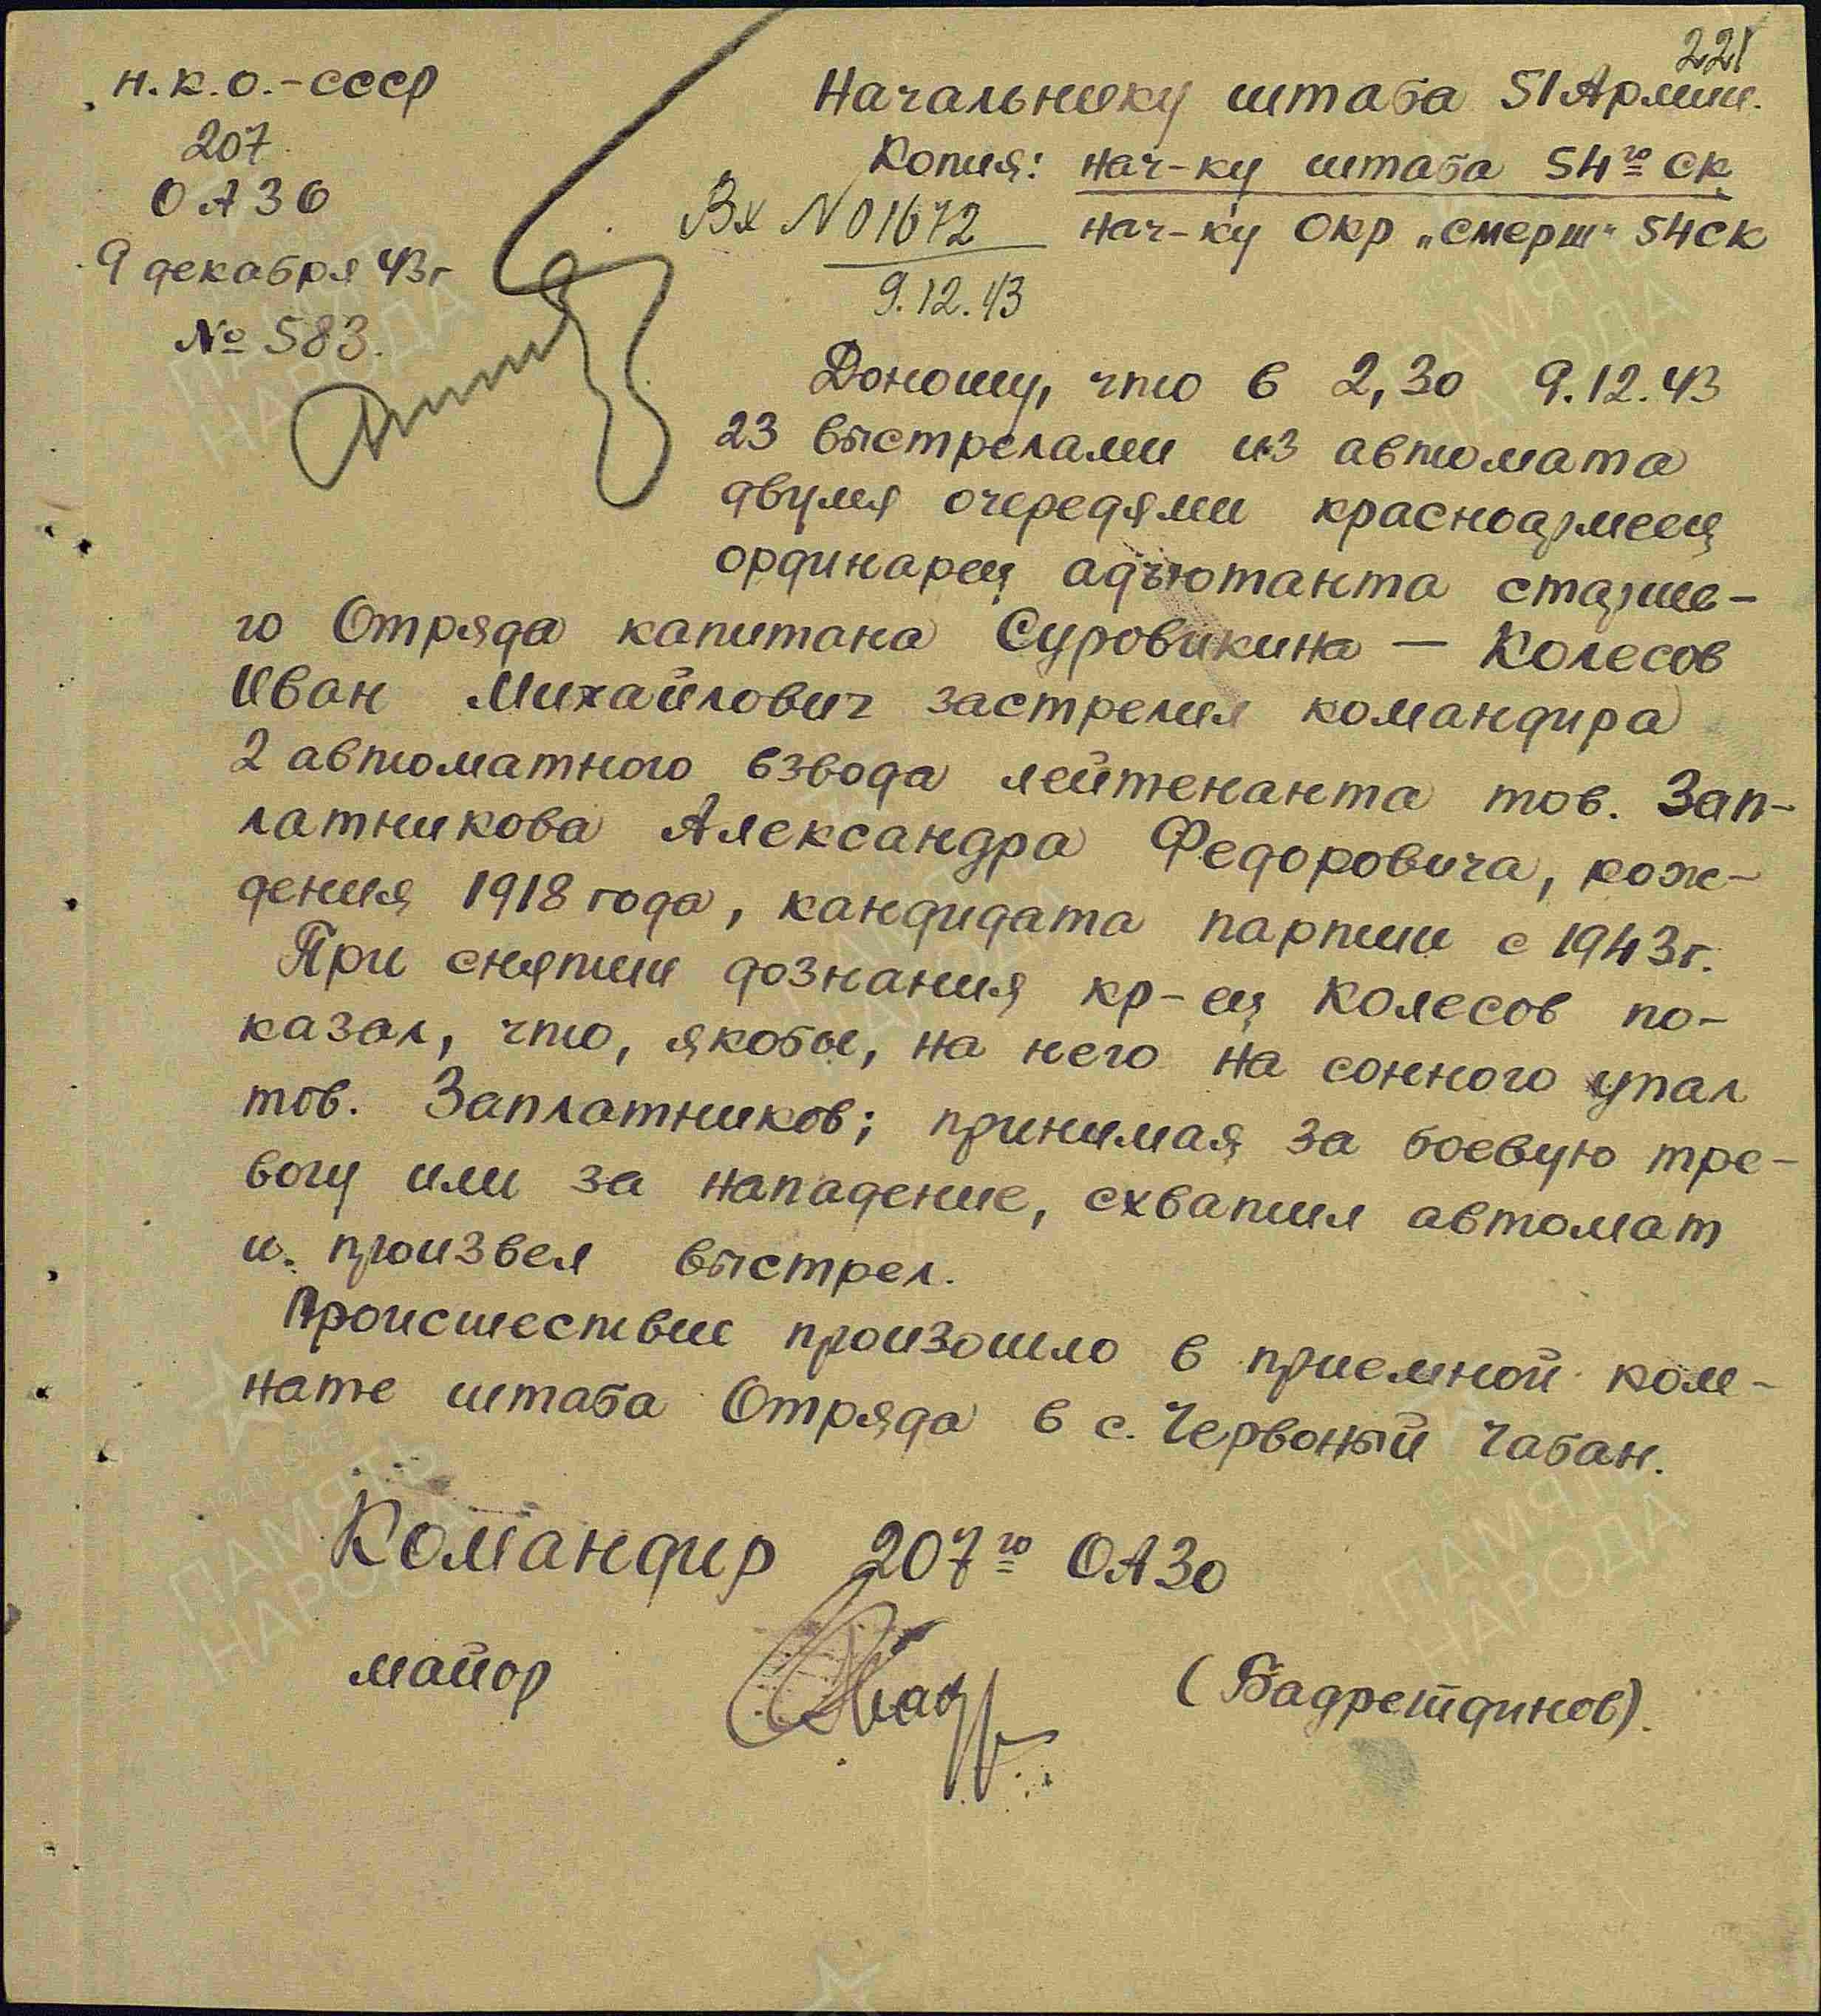 221
н.к.о.-СССР
207
ОАЗО
9 декабря 43г
№ 583.
Начальнику штаба 51 Армии.
Копия: нач-ку штаба 54го СК
нач-ку ОКР „Смерш" 54СК
Вх N 01672
9.12.43
Доношу, что в 2,30 9.12.43
23 выстрелами из автомата
двумя очередями красноармеец
ординарец адъютанта старше-
го Отряда капитана Суровикина — Колесов
Иван Михайлович застрелил командира
2 автоматного взвода лейтенанта тов. Зап-
латникова Александра Федоровича, рож-
дения 1918 года, кандидата партии с 1943г.
При снятии дознания кр-ец Колесов по-
казал, что, якобы, на него на сонного упал
тов. Заплатников; принимая за боевую тре-
вогу или за нападение, схватил автомат
и произвел выстрел.
Происшествие произошло в приемной ком-
нате штаба Отряда в с. Червоный Чабан.
Командир 207го ОАЗО
майор (Бадретдинов).
ПАМЯТЬ
НАРОДА